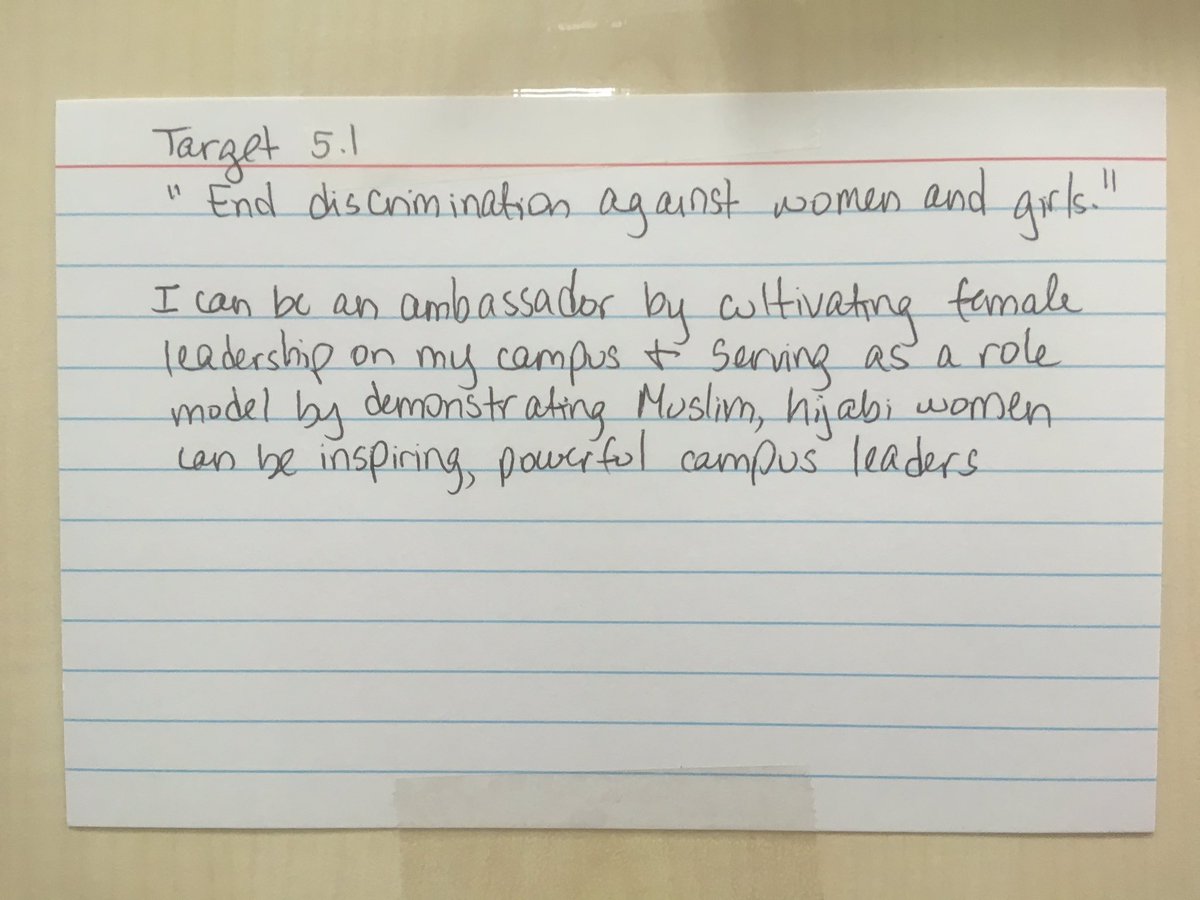 Target 5.1
" End discrimination against women and girls."
I can be an ambassador by cultivating female
leadership on my campus + serving as a role
model by demonstrating Muslim, hijabi women
can be inspiring, powerful campus leaders